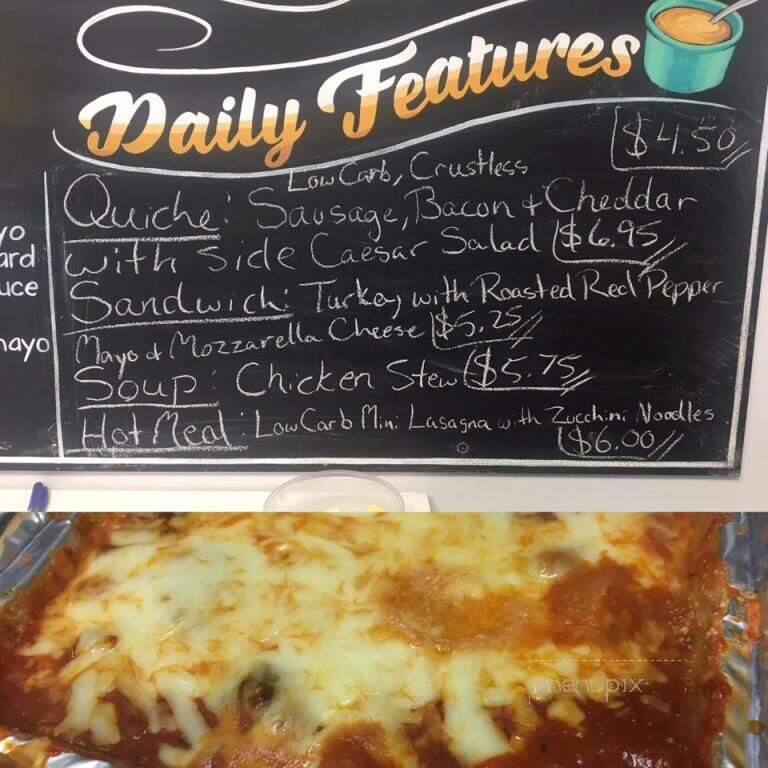 Daily Features
$4.50
Low Carb, Crustless
Quiche: Sausage, Bacon + Cheddar
with Side Caesar Salad $6.95
Sandwich: Turkey with Roasted Red Pepper
Mayo & Mozzarella Cheese $5.25
Soup: Chicken Stew $5.75
Hot Meal: Low Carb Mini Lasagna with Zucchini Noodles
$6.00
yo
ard
uce
mayo
menupix